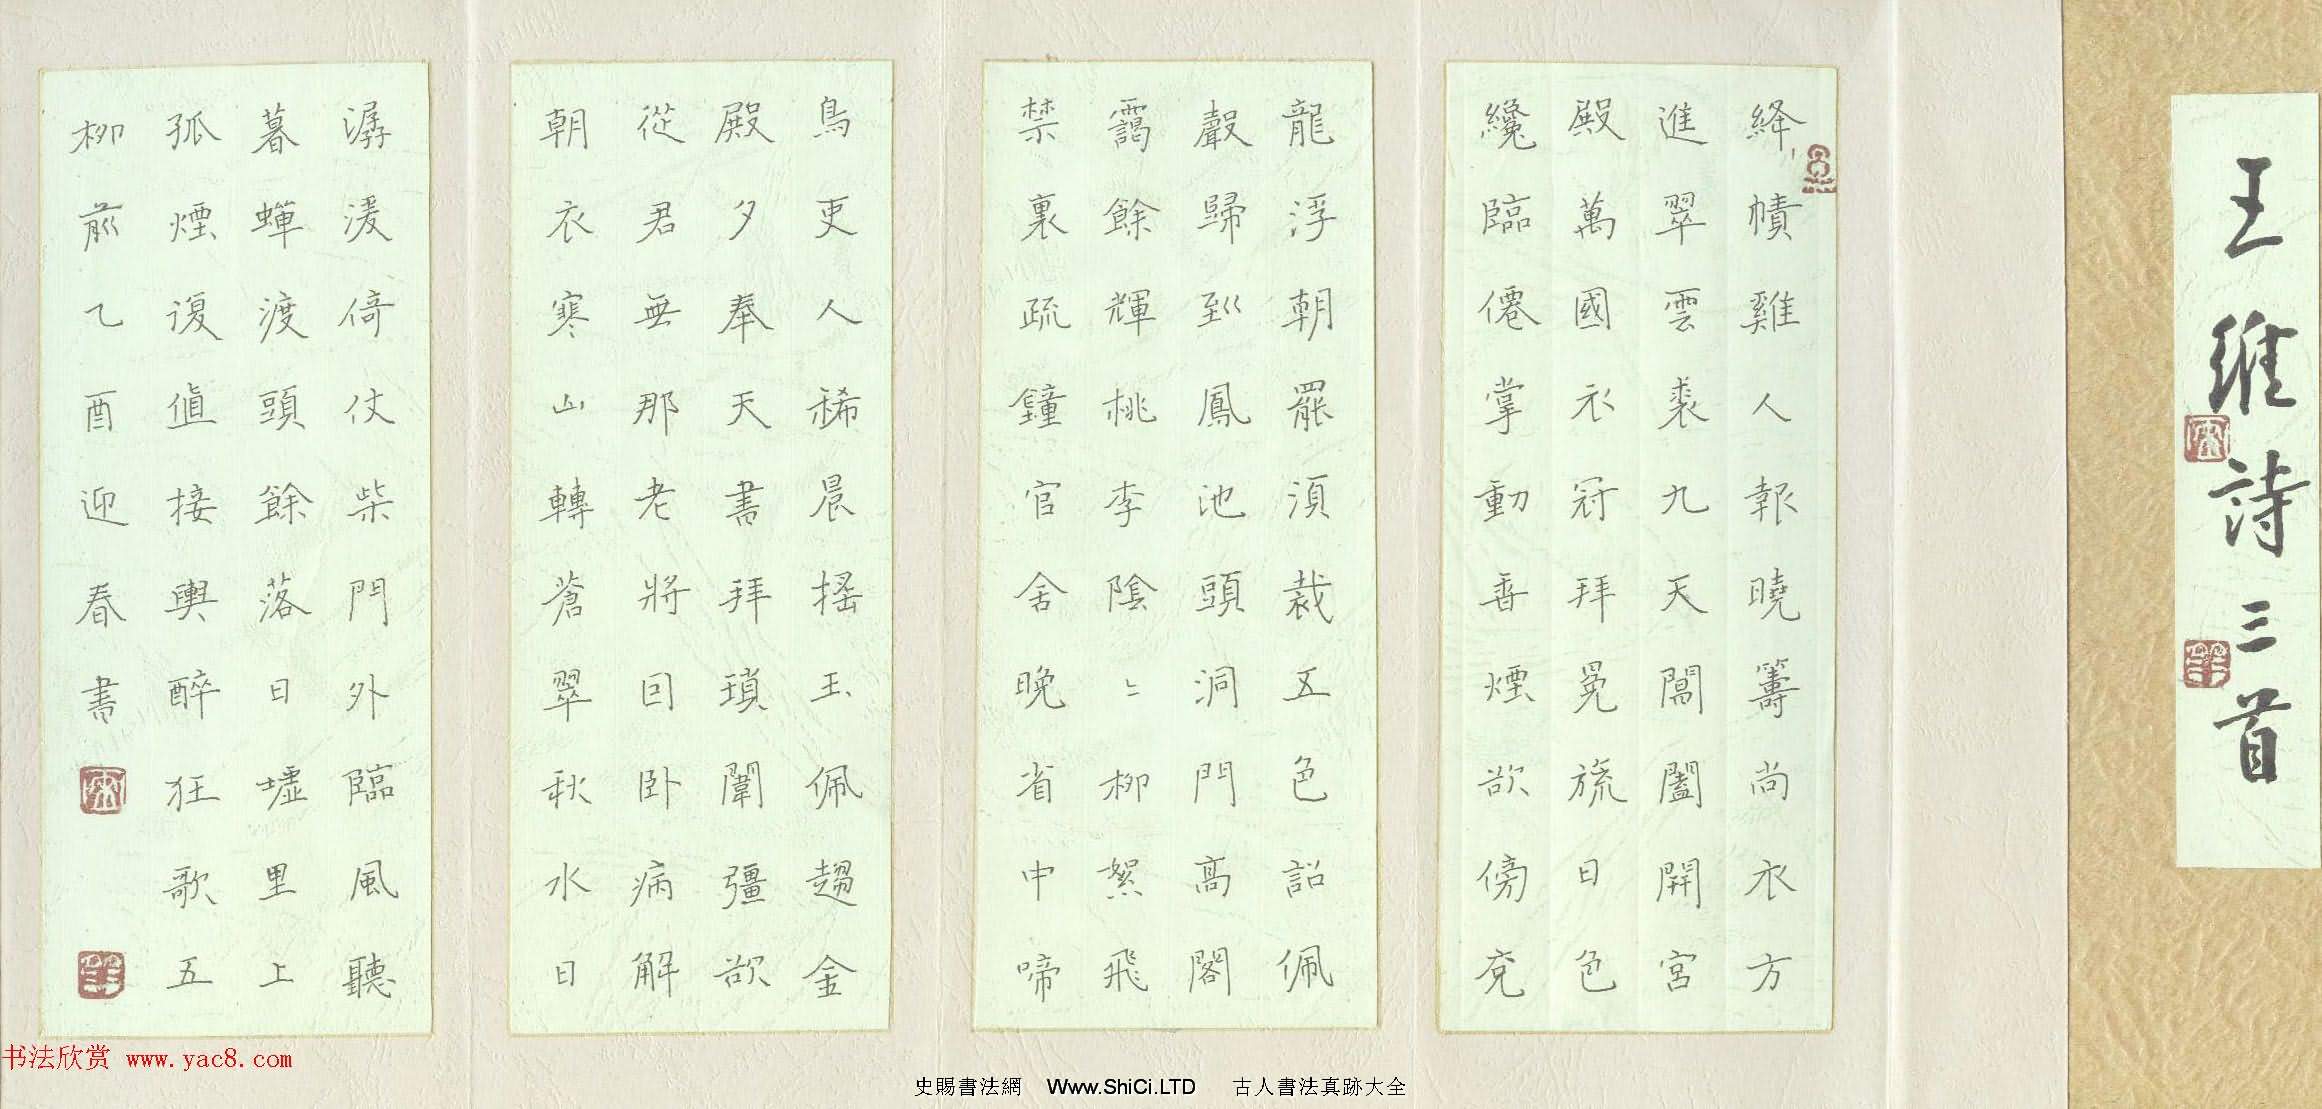 王維詩三首
絳幘雞人報曉籌尚衣方
進翠雲裘九天閶闔開宮
殿萬國衣冠拜冕旒日色
纔臨僊掌動香煙欲傍袞
龍浮朝罷須裁五色詔佩
聲歸到鳳池頭洞門高閣
靄餘輝桃李陰〻柳絮飛
禁裏疏鐘官舍晚省中啼
鳥吏人稀晨搖玉佩趨金
殿夕奉天書拜瑣闈彊欲
從君無那老將囙卧病解
朝衣寒山轉蒼翠秋水日
潺湲倚仗柴門外臨風聽
暮蟬渡頭餘落日墟里上
孤煙復值接輿醉狂歌五
柳前乙酉迎春書
书法欣赏 www.yac8.com
史賜書法網 Www.ShiCi.LTD 古人書法真跡大全